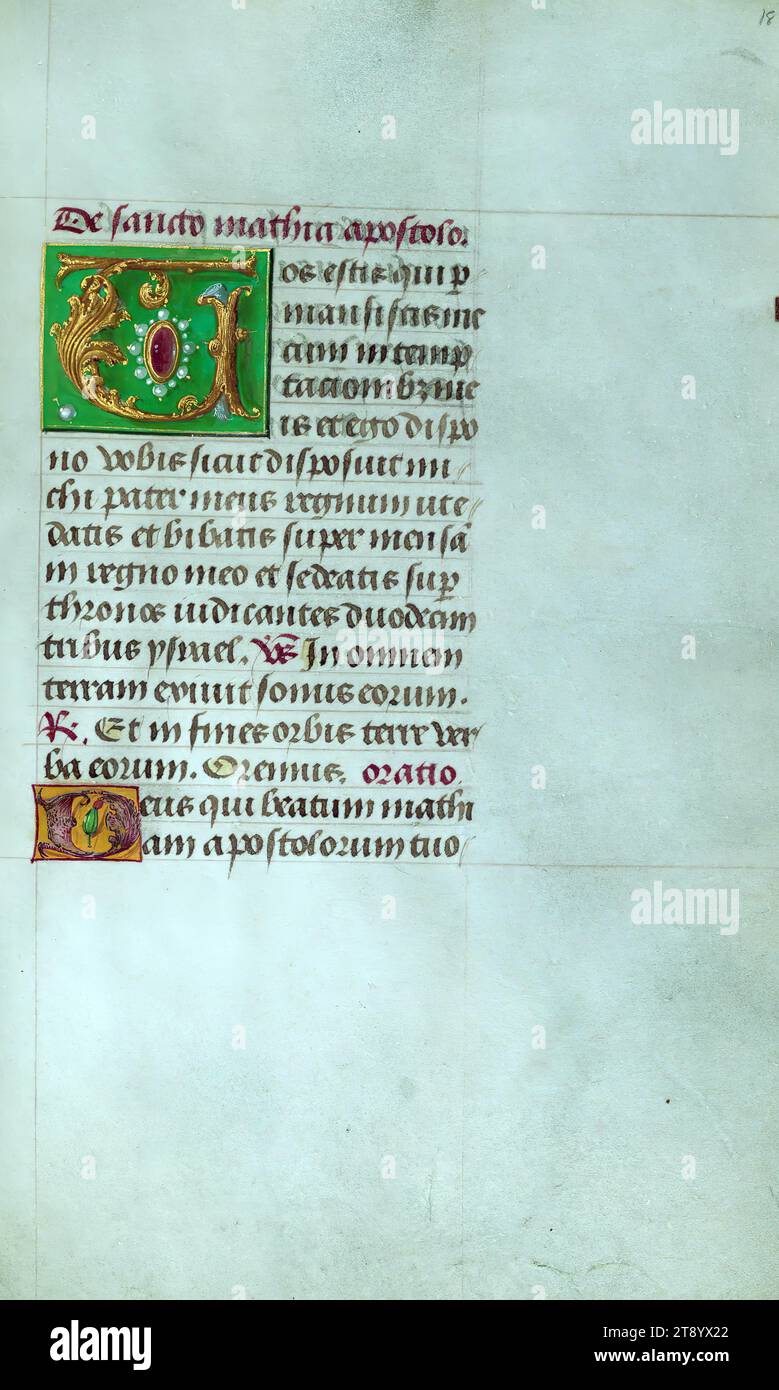 18
De sancto mathia apostolo.
Vos estis qui p̄
mansistis me
cum in temp
tacionibꝫ me
is et ego dispo
no vobis sicut disposuit mi
chi pater meus regnum ut e
datis et bibatis super mensā
in regno meo et sedeatis sup̄
thronos iudicantes duodecim
tribus ysrael. Vs In omnem
terram exiuit sonus eorum.
R. Et in fines orbis terre ver
ba eorum. Oremus. oratio.
Deus qui beatum mathi
am apostolorum tuo
alamy
Image ID: 2T81YX22
www.alamy.com